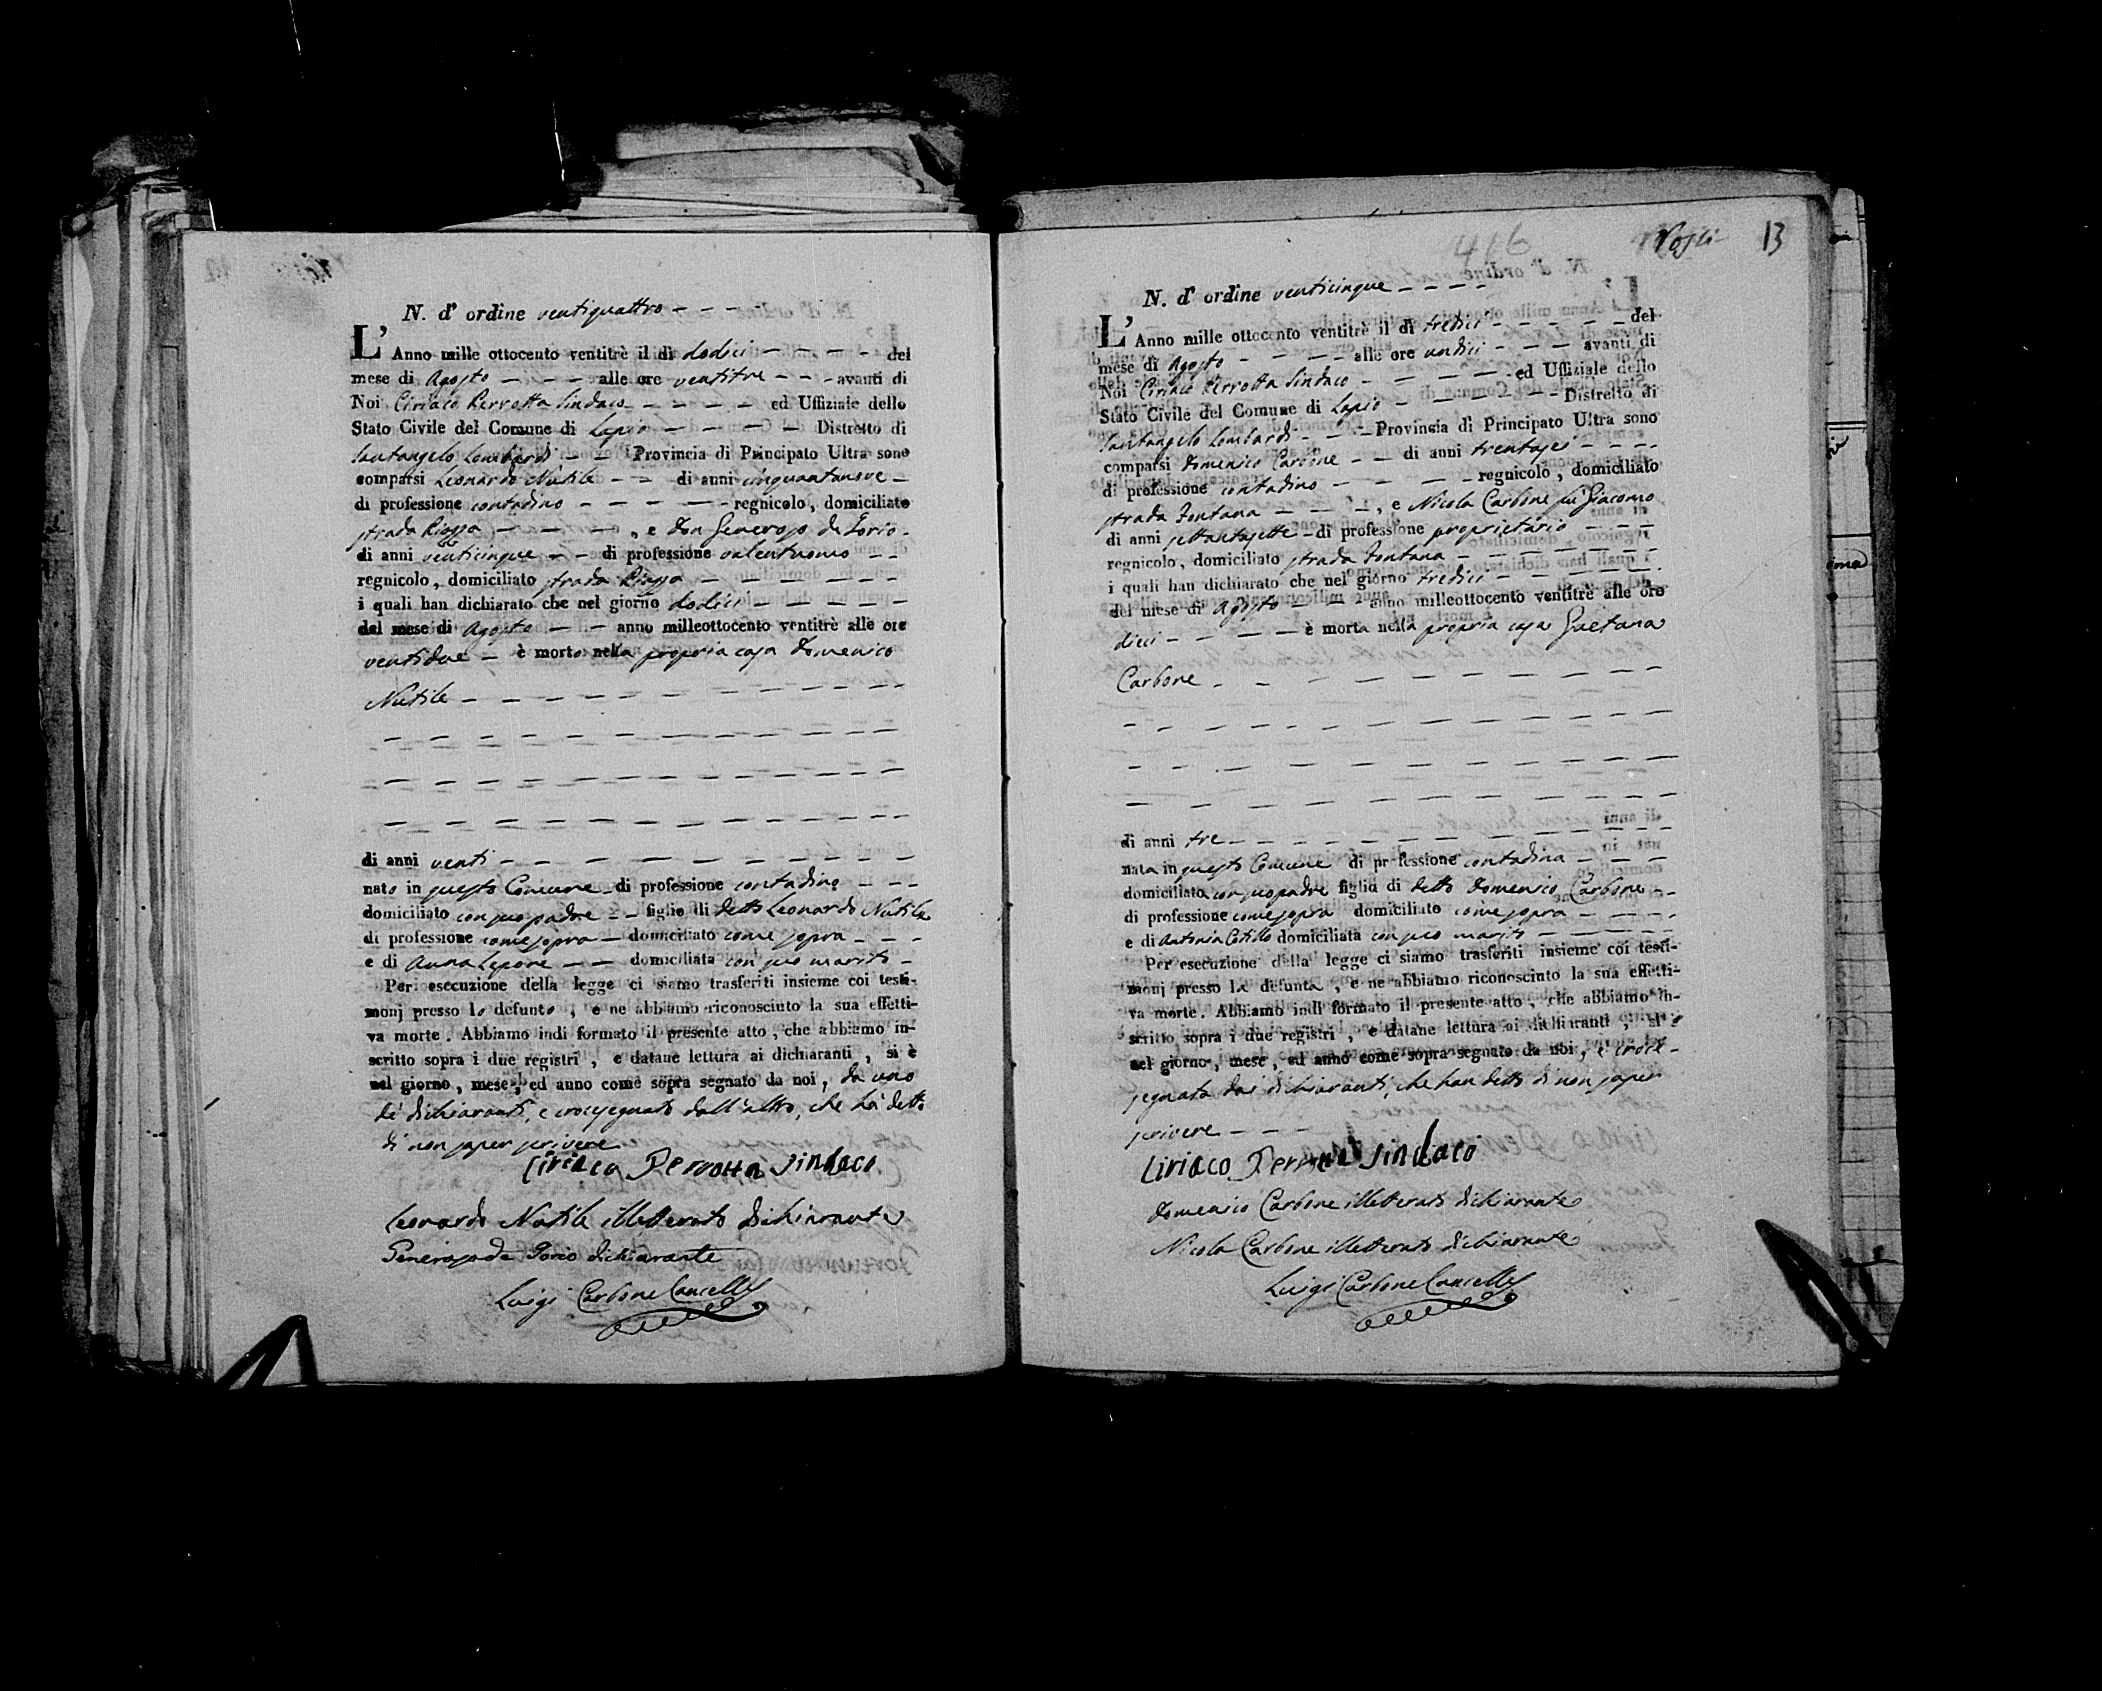 N. d' ordine ventiquattro - - - -
L' Anno mille ottocento ventitrè il dì dodici - - - - - del
mese di Agosto - - - - alle ore ventitre - - - avanti di
Noi Ciriaco Perrotta Sindaco - - - - - ed Uffiziale dello
Stato Civile del Comune di Lapio - - - - - Distretto di
Santangelo Lombardi - - Provincia di Principato Ultra sono
comparsi Leonardo Nutile - - di anni cinquantanove -
di professione contadino - - - - - regnicolo, domiciliato
strada Piazza - - - - , e Don Generoso de Iorio -
di anni venticinque - - di professione valentuomo - -
regnicolo, domiciliato strada Piazza - - - - - -
i quali han dichiarato che nel giorno dodici - - - - -
del mese di Agosto - - - anno milleottocento ventitrè alle ore
ventidue - è morto nella propria casa Domenico
Nutile - - - - - - - - - - - -
di anni venti - - - - - - - - - - -
nato in questo Comune - di professione contadino - - -
domiciliato con suo padre - - figlio di detto Leonardo Nutile
di professione come sopra - domiciliato come sopra - - -
e di Anna Lepore - - domiciliata con suo marito -
Per esecuzione della legge ci siamo trasferiti insieme coi testi-
monj presso lo defunto, e ne abbiamo riconosciuto la sua effetti-
va morte. Abbiamo indi formato il presente atto, che abbiamo in-
scritto sopra i due registri, e datane lettura ai dichiaranti, si è
nel giorno, mese, ed anno come sopra segnato da noi, da uno
de' dichiaranti, e crocesegnato dall'altro, che ha detto
di non saper scrivere
Ciriaco Perrotta Sindaco
Leonardo Nutile illetterato dichiarante
Generoso de Iorio dichiarante
Luigi Carbone Cancell.
416
13
N. d' ordine venticinque - - - -
L' Anno mille ottocento ventitrè il dì tredici - - - - - del
mese di Agosto - - - - alle ore undici - - - avanti di
Noi Ciriaco Perrotta Sindaco - - - - - ed Uffiziale dello
Stato Civile del Comune di Lapio - - - - - Distretto di
Santangelo Lombardi - - - Provincia di Principato Ultra sono
comparsi Domenico Carbone - - di anni trentasei - - - -
di professione contadino - - - - - regnicolo, domiciliato
strada Fontana - - - -, e Nicola Carbone fu Giacomo
di anni settantasette - di professione proprietario - - -
regnicolo, domiciliato strada Fontana - - - - - - -
i quali han dichiarato che nel giorno tredici - - - - - -
del mese di Agosto - - - anno milleottocento ventitrè alle ore
dieci - - - - è morta nella propria casa Gaetana
Carbone - - - - - - - - - - -
di anni tre - - - - - - - - - - -
nata in questo Comune di professione contadina - - -
domiciliata con suo padre figlia di detto Domenico Carbone - -
di professione come sopra domiciliato come sopra - - - -
e di Antonia Cotillo domiciliata con suo marito - - - - -
Per esecuzione della legge ci siamo trasferiti insieme coi testi-
monj presso la defunta, e ne abbiamo riconosciuto la sua effetti-
va morte. Abbiamo indi formato il presente atto, che abbiamo in-
scritto sopra i due registri, e datane lettura ai dichiaranti, si è
nel giorno, mese, ed anno come sopra segnato da noi, e croce-
segnato dai dichiaranti, che han detto di non saper
scrivere - - -
Ciriaco Perrotta Sindaco
Domenico Carbone illetterato dichiarante
Nicola Carbone illetterato dichiarante
Luigi Carbone Cancell.